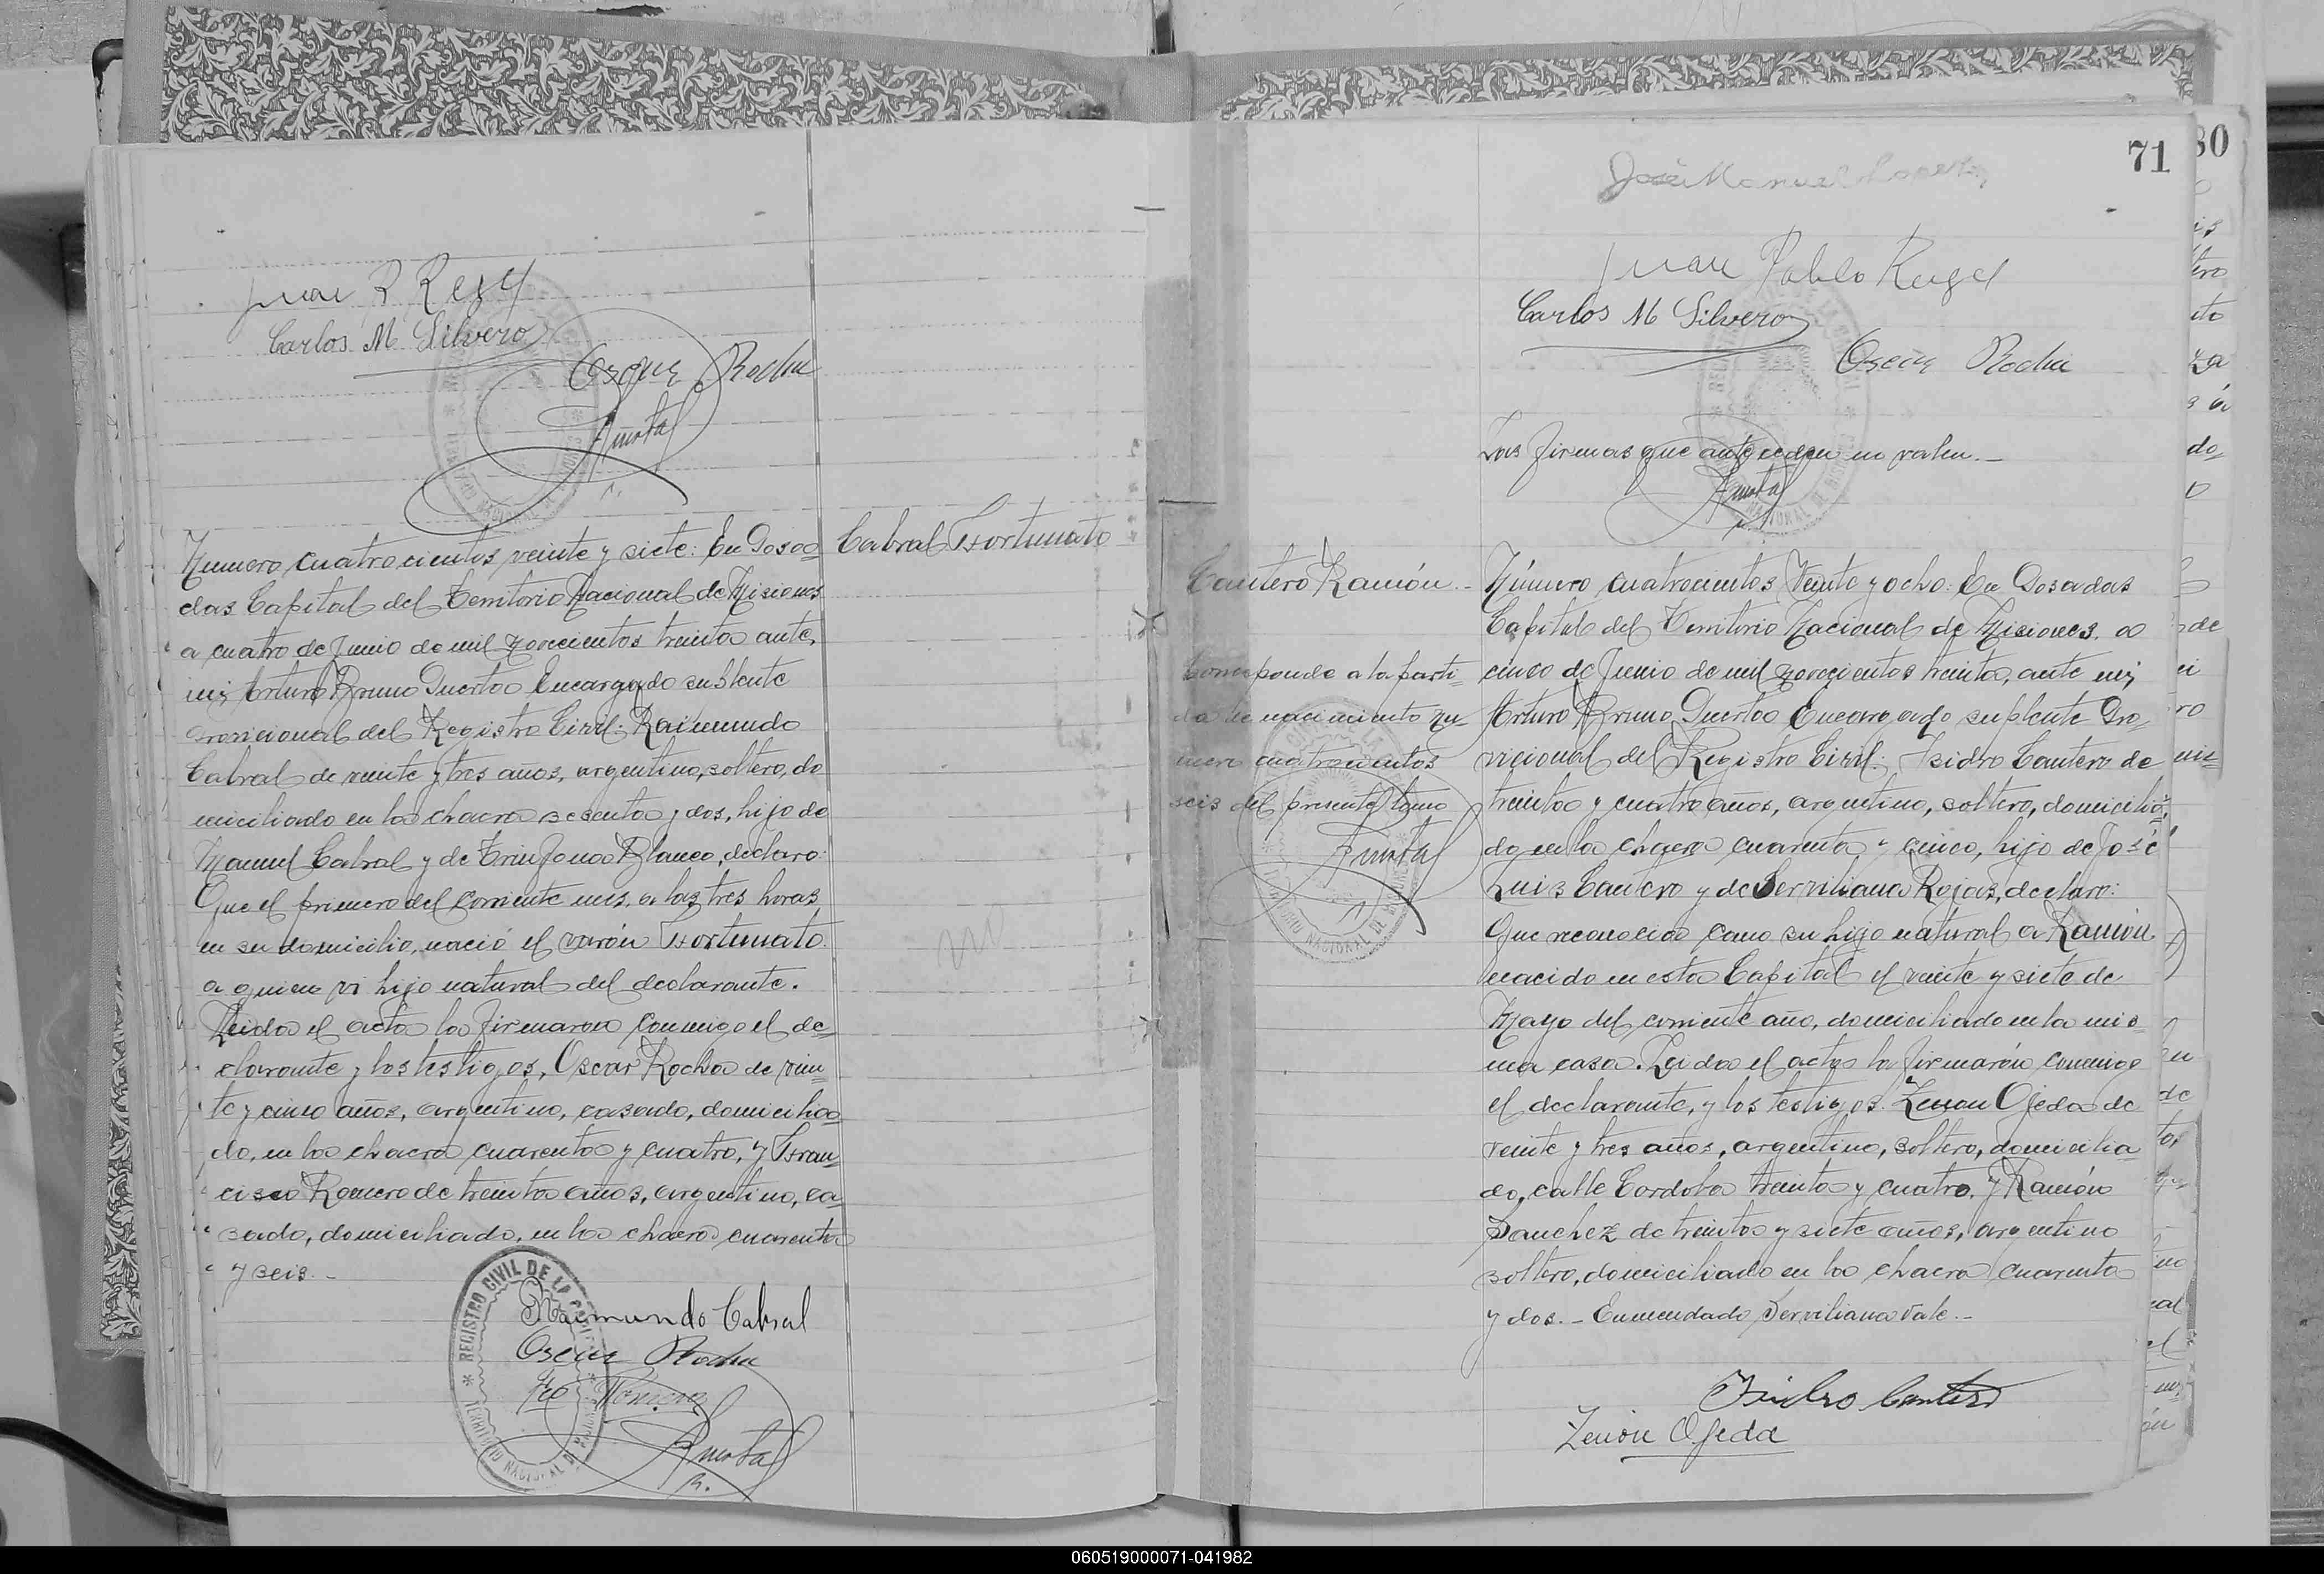 Juan P Regel
Carlos M Silvero
Oscar Rocha
Numero cuatrocientos veinte y siete: En Posa
das Capital del Territorio Nacional de Misiones
a cuatro de Junio de mil novecientos treinta ante,
mi, Arturo Bruno Puerta Encargado suplente
Provicional del Registro Civil: Raimundo
Cabral de veinte y tres años, argentino, soltero, do
miciliado en la chacra sesenta y dos, hijo de
Manuel Cabral y de Trinfona Blanco, declaro:
Que el primero del corriente mes, a las tres horas
en su domicilio, nació el varón Fortunato
a quien vi hijo natural del declarante.
Leida el acta la firmaron conmigo el de-
clarante y los testigos, Oscar Rocha de vein-
te y cinco años, argentino, casado, domicilia
do, en la chacra cuarenta y cuatro, y Fran-
cisco Romero de treinta años, argentino, ca
sado, domiciliado, en la chacra cuarenta
y seis.-
Cabral Fortunato
REGISTRO CIVIL DE LA
TERRITORIO NACIONAL DE
Raimundo Cabral
Oscar Rocha
Fco Romero
71
80
José Manuel Lopez
Juan Pablo Regel
Carlos M Silvero
Oscar Rocha
Las firmas que anteceden no valen.-
Cantero Ramón.-
Corresponde a la parti-
da de nacimiento nu-
mero cuatrocientos
seis del presente tomo
Número cuatrocientos Veinte y ocho: En Posadas
Capital del Territorio Nacional de Misiones, a
cinco de Junio de mil novecientos treinta, ante mi,
Arturo Bruno Puerta Encargado suplente Pro-
vicional del Registro Civil: Isidro Cantero de
treinta y cuatro años, argentino, soltero, domicilia-
do en la chacra cuarenta y cinco, hijo de José
Luis Cantero y de Serviliana Rojas, declaro:
Que reconocia como su hijo natural a Ramón
nacido en esta Capital el veinte y siete de
Mayo del corriente año, domiciliado en la mis-
ma casa. Leida el acta la firmarón conmigo
el declarante, y los testigos. Zenon Ojeda de
veinte y tres años, argentino, soltero, domicilia
do, calle Cordoba treinta y cuatro, y Ramón
Sanchez de treinta y siete años, argentino
soltero, domiciliado en la chacra cuarenta
y dos.- Enmendado Serviliana Vale.-
Isidro Cantero
Zenon Ojeda
060519000071-041982